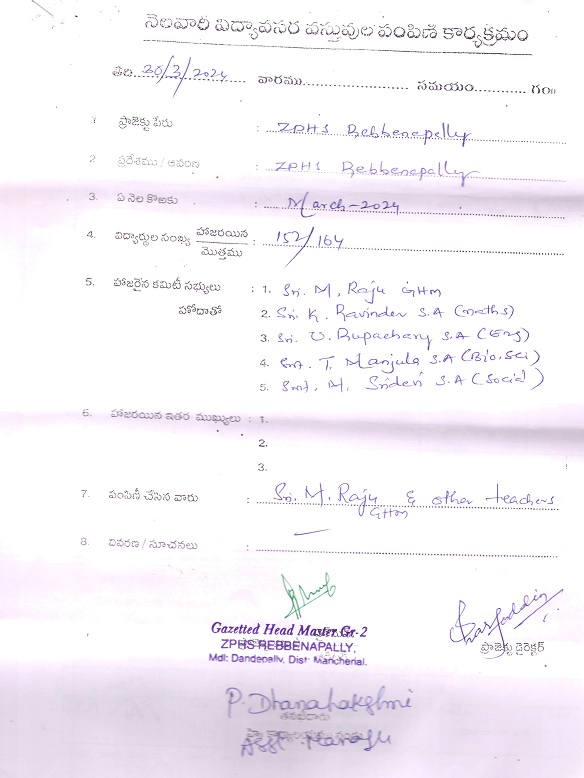 నెలవారీ విద్యావసర వస్తువుల పంపిణి కార్యక్రమం
తేది 30/3/2024 వారము.................... సమయం............ గం॥
1 ప్రాజెక్టు పేరు : ZPHS Rebbenapally
2 ప్రదేశము / ఆవరణ : ZPHS Rebbenapally
3. ఏ నెల కొఱకు : March-2024
4. విద్యార్థుల సంఖ్య హాజరయిన / మొత్తము : 152/164
5. హాజరైన కమిటీ సభ్యులు : 1. Sri. M. Raju GHM
హోదాతో 2. Sri. K. Ravinder S.A (maths)
3. Sri. V. Rupachary S.A (Eng)
4. Smt. T. Manjula S.A (Bio.Sci)
5. Smt. M. Sridevi S.A (Social)
6. హాజరయిన ఇతర ముఖ్యులు : 1.
2.
3.
7. పంపిణీ చేసిన వారు : Sri. M. Raju & other teachers
GHM
8. వివరణ / సూచనలు :
Gazetted Head Master Gr-2
ZPHS REBBENAPALLY,
Mdl: Dandepally, Dist: Mancherial.
ప్రాజెక్టు డైరెక్టర్
P. Dhanalakshmi